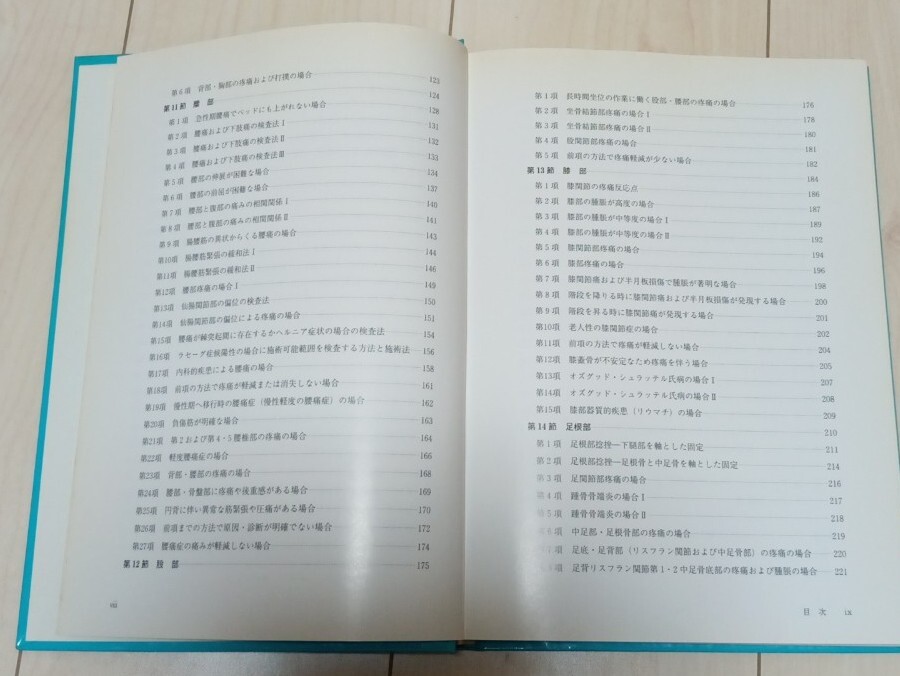 第6項 背部・胸部の疼痛および打撲の場合 123
第11節 腰部 124
第1項 急性期腰痛でベッドにも上がれない場合 128
第2項 腰痛および下肢痛の検査法Ⅰ 131
第3項 腰痛および下肢痛の検査法Ⅱ 132
第4項 腰痛および下肢痛の検査法Ⅲ 133
第5項 腰部の伸展が困難な場合 134
第6項 腰部の前屈が困難な場合 137
第7項 腰部と腹部の痛みの相関関係Ⅰ 140
第8項 腰部と腹部の痛みの相関関係Ⅱ 141
第9項 腸腰筋の異状からくる腰痛の場合 143
第10項 腸腰筋緊張の緩和法Ⅰ 144
第11項 腸腰筋緊張の緩和法Ⅱ 146
第12項 腰部疼痛の場合Ⅰ 149
第13項 仙腸関節部の偏位の検査法 150
第14項 仙腸関節部の偏位による疼痛の場合 151
第15項 腰痛が棘突起間に存在するかヘルニア症状の場合の検査法 154
第16項 ラセーグ症候陽性の場合に施術可能範囲を検査する方法と施術法 156
第17項 内科的疾患による腰痛の場合 158
第18項 前項の方法で疼痛が軽減または消失しない場合 161
第19項 慢性期へ移行時の腰痛症（慢性軽度の腰痛症）の場合 162
第20項 負傷筋が明確な場合 163
第21項 第2および第4・5腰椎部の疼痛の場合 164
第22項 軽度腰痛症の場合 166
第23項 背部・腰部の疼痛の場合 168
第24項 腰部・骨盤部に疼痛や後重感がある場合 169
第25項 円背に伴い異常な筋緊張や圧痛がある場合 170
第26項 前項までの方法で原因・診断が明確でない場合 172
第27項 腰痛症の痛みが軽減しない場合 174
第12節 股部 175
viii
第1項 長時間坐位の作業に働く殿部・腰部の疼痛の場合 176
第2項 坐骨結節部疼痛の場合Ⅰ 178
第3項 坐骨結節部疼痛の場合Ⅱ 180
第4項 股関節部疼痛の場合 181
第5項 前項の方法で疼痛軽減が少ない場合 182
第13節 膝部 184
第1項 膝関節の疼痛反応点 186
第2項 膝部の腫脹が高度の場合 187
第3項 膝部の腫脹が中等度の場合Ⅰ 189
第4項 膝部の腫脹が中等度の場合Ⅱ 192
第5項 膝関節部疼痛の場合 194
第6項 膝部疼痛の場合 196
第7項 膝関節痛および半月板損傷で腫脹が著明な場合 198
第8項 階段を降りる時に膝関節痛および半月板損傷が発現する場合 200
第9項 階段を昇る時に膝関節痛が発現する場合 201
第10項 老人性の膝関節症の場合 202
第11項 前項の方法で疼痛が軽減しない場合 204
第12項 膝蓋骨が不安定なため疼痛を伴う場合 205
第13項 オズグッド・シュラッテル氏病の場合Ⅰ 207
第14項 オズグッド・シュラッテル氏病の場合Ⅱ 208
第15項 膝部器質的疾患（リウマチ）の場合 209
第14節 足根部 210
第1項 足根部捻挫―下腿部を軸とした固定 211
第2項 足根部捻挫―足根骨と中足骨を軸とした固定 214
第3項 足関節部疼痛の場合 216
第4項 踵骨骨端炎の場合Ⅰ 217
第5項 踵骨骨端炎の場合Ⅱ 218
項 中足部・足根骨部の疼痛の場合 219
項 足底・足背部（リスフラン関節および中足骨部）の疼痛の場合 220
項 足背リスフラン関節第1・2中足骨底部の疼痛および腫脹の場合 221
目次 ix